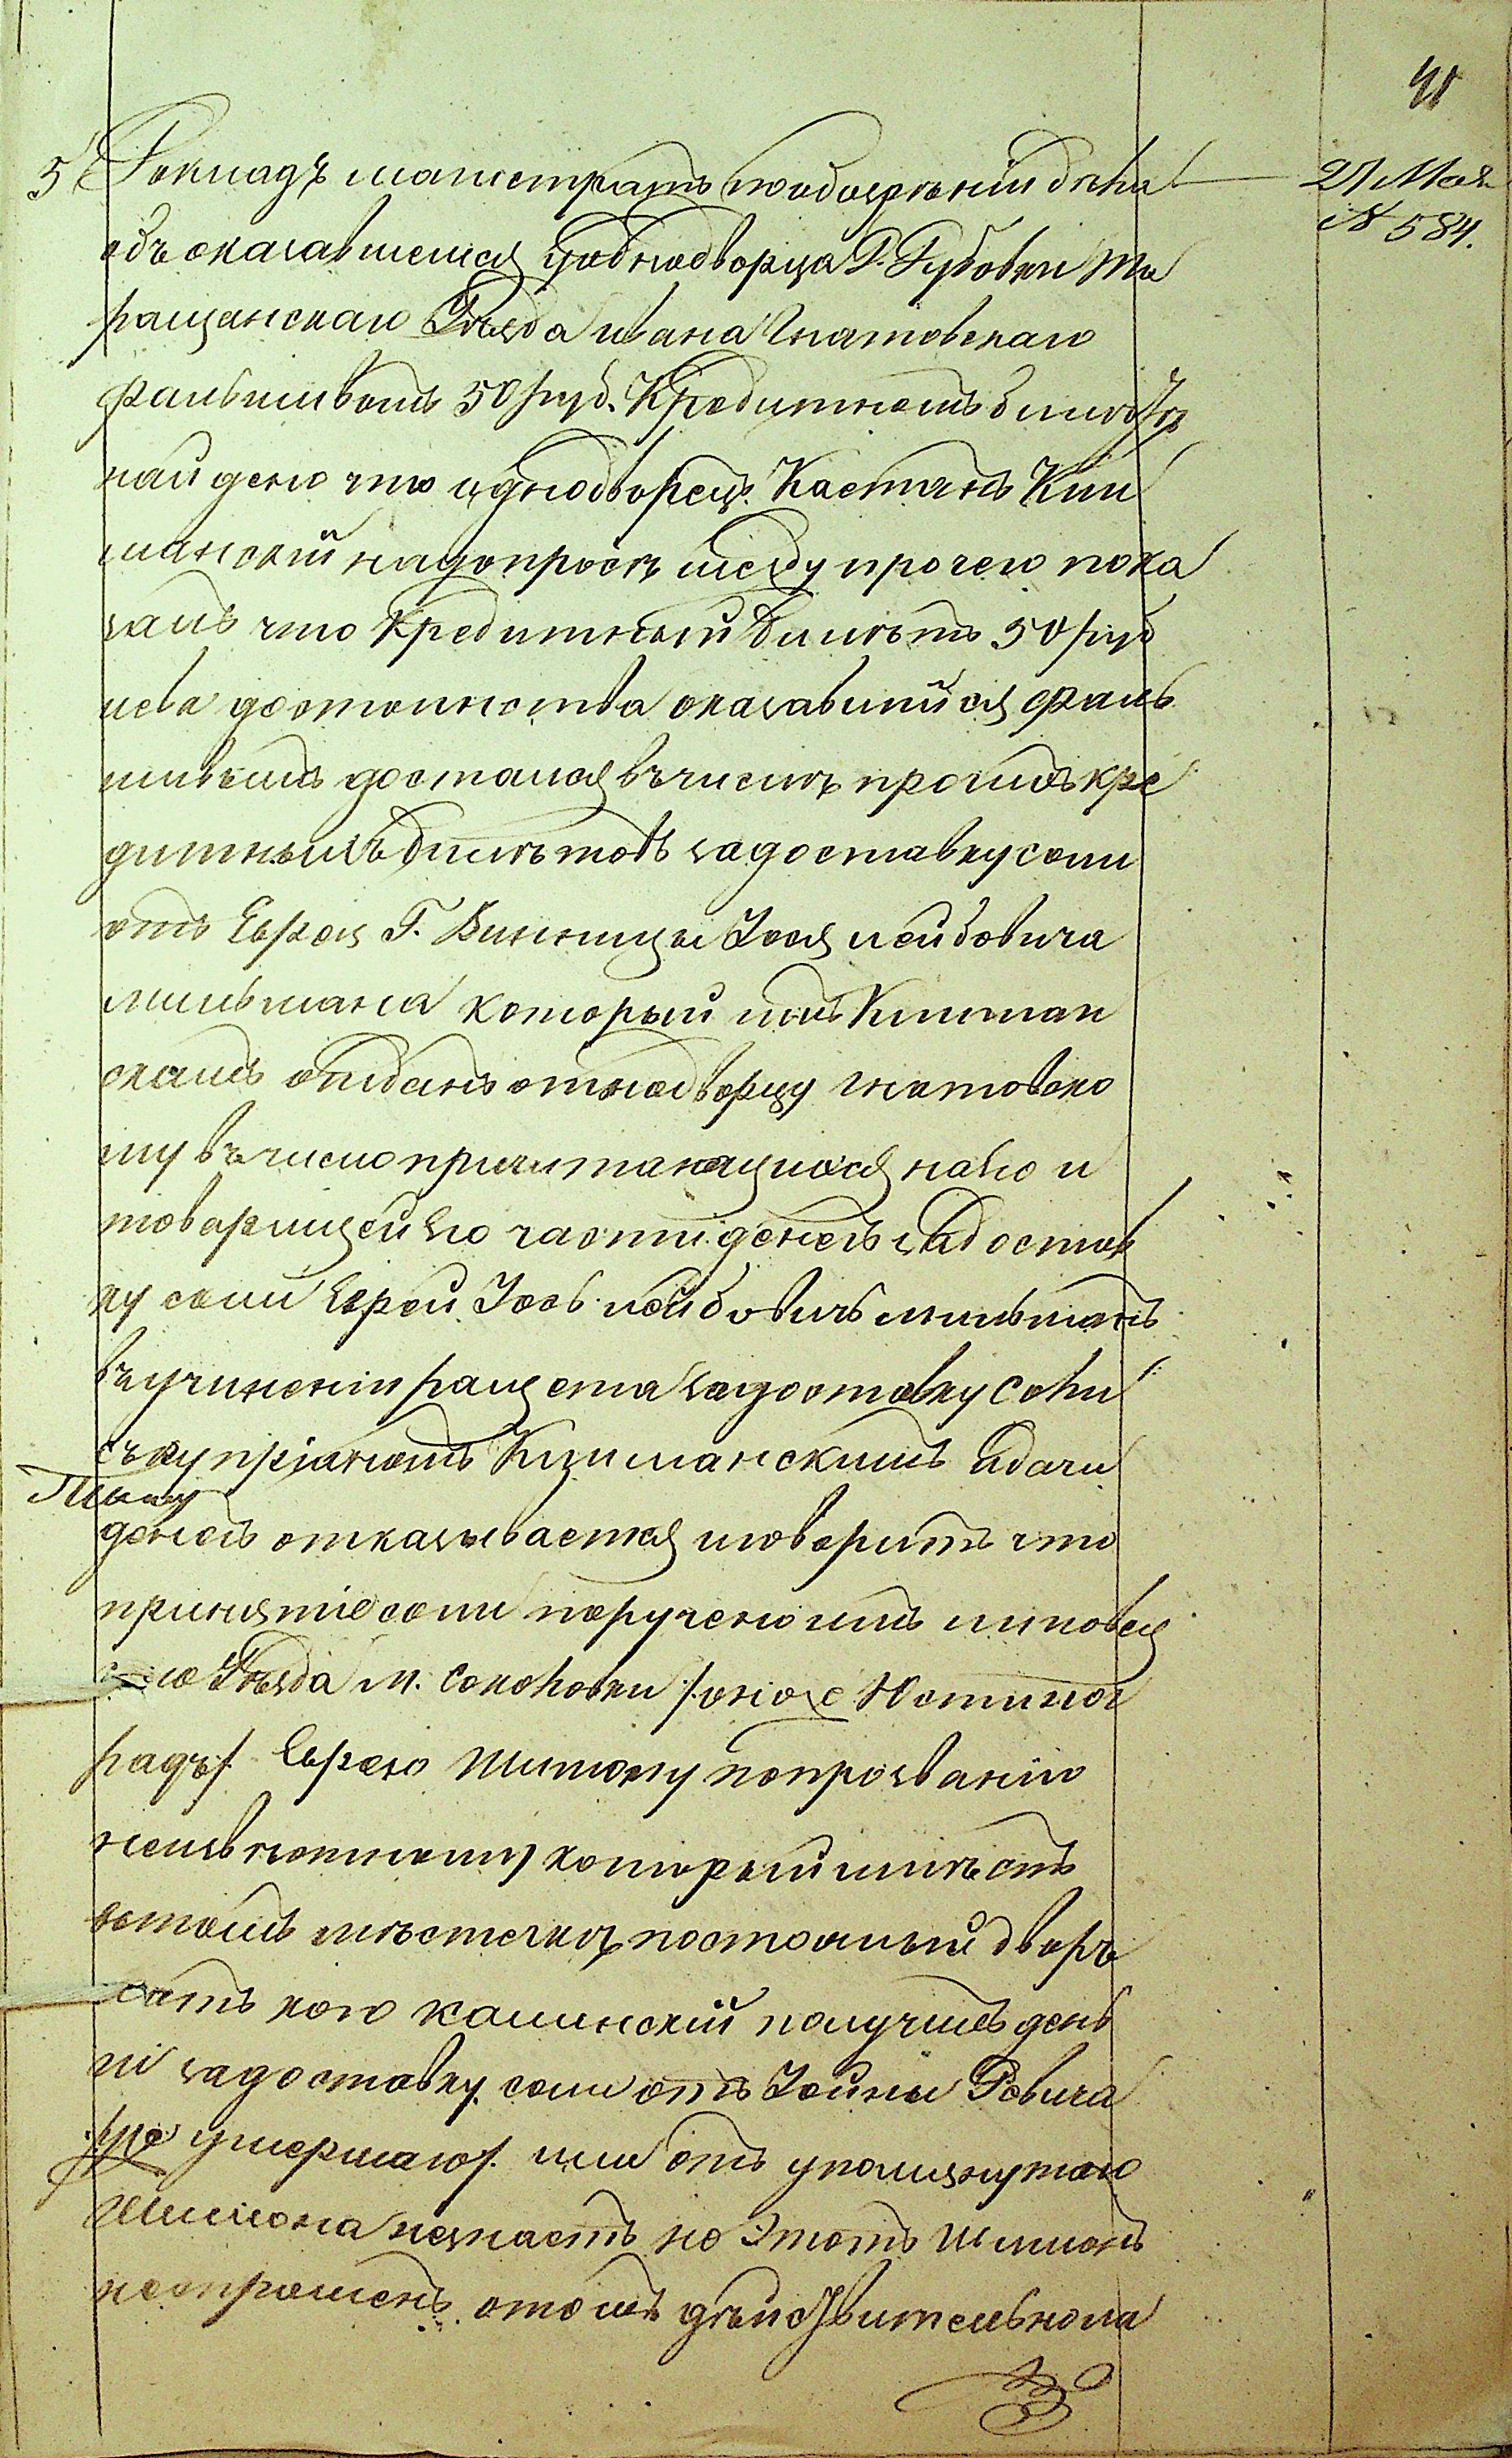 41
5 Докладъ магистратъ пообозреніи дѣла
27 Мая
№ 584.
объ оказавшемся уоднодворца Д. Губовки Та
ращанскаго Уѣзда ивана Гнатовскаго
фальшивомъ 50 руб. Кредитномъ билетѣ
найдено что однодворецъ
манскій надопросѣ между прочего пока
залъ что Кредитный билетъ 50 руб
лева достоинства оказавшийся фаль
шивымъ достался въ числѣ прочихъ кре
дитныхъ билѣтовъ задоставку соли
отъ Еврея Г. Винницы Іося лейбовича
мильмана который имъ Кициман
скимъ отданъ однодворцу гнатовско
му въ число причитающихся наего и
товарищей его части денегъ задостав
ку соли Еврей Іось лейбовичъ мильманъ
въ учиненіи ращета задоставку соли
съ купріяномъ Кициманскимъ идачи
Тому
денегъ отказывается иговоритъ что
принятіе соли поручено имъ липовец
каго Уѣзда М. Соколовки /: оноже Юстингр
радъ:/ Еврею Шимону попрозванію
неизвѣстному который имѣетъ
втомъ мѣстечкѣ постоялый дворъ
отъ кого каминскій получилъ день
ги задоставку соли отъ Іойны Ровича
/: уже умершаго:/ или отъ упомянутаго
Шимона незнаетъ но Этотъ Шимонъ
неопрошенъ отомъ дѣйствительнола